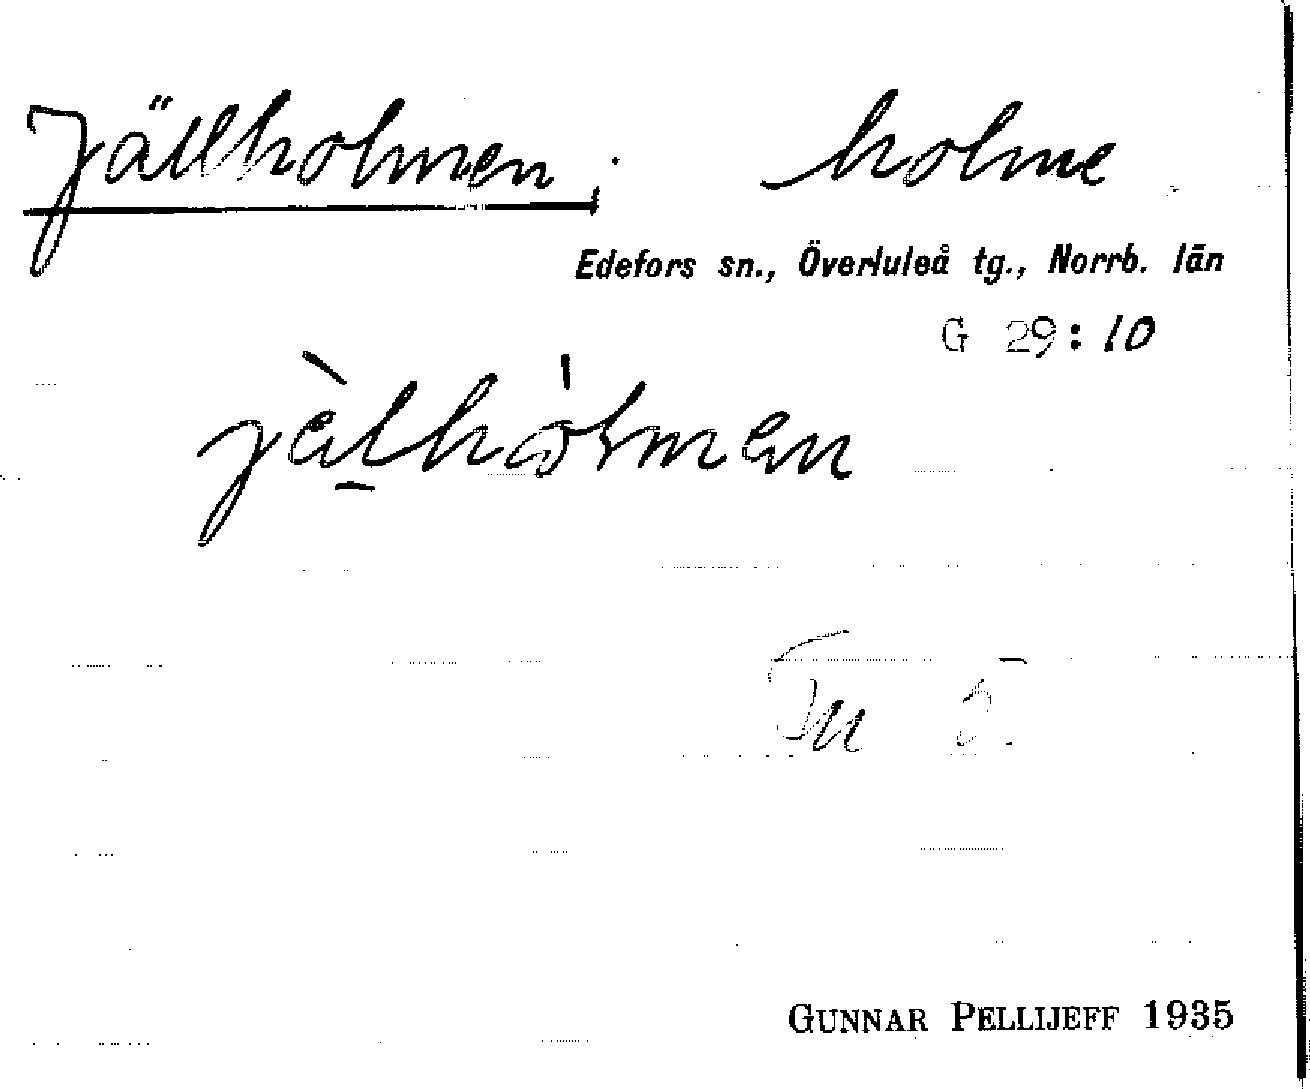 Jällholmen; holme
Edefors sn., Överluleå tg., Norrb. län
G 29:10
jälhólmen
GUNNAR PELLIJEFF 1935